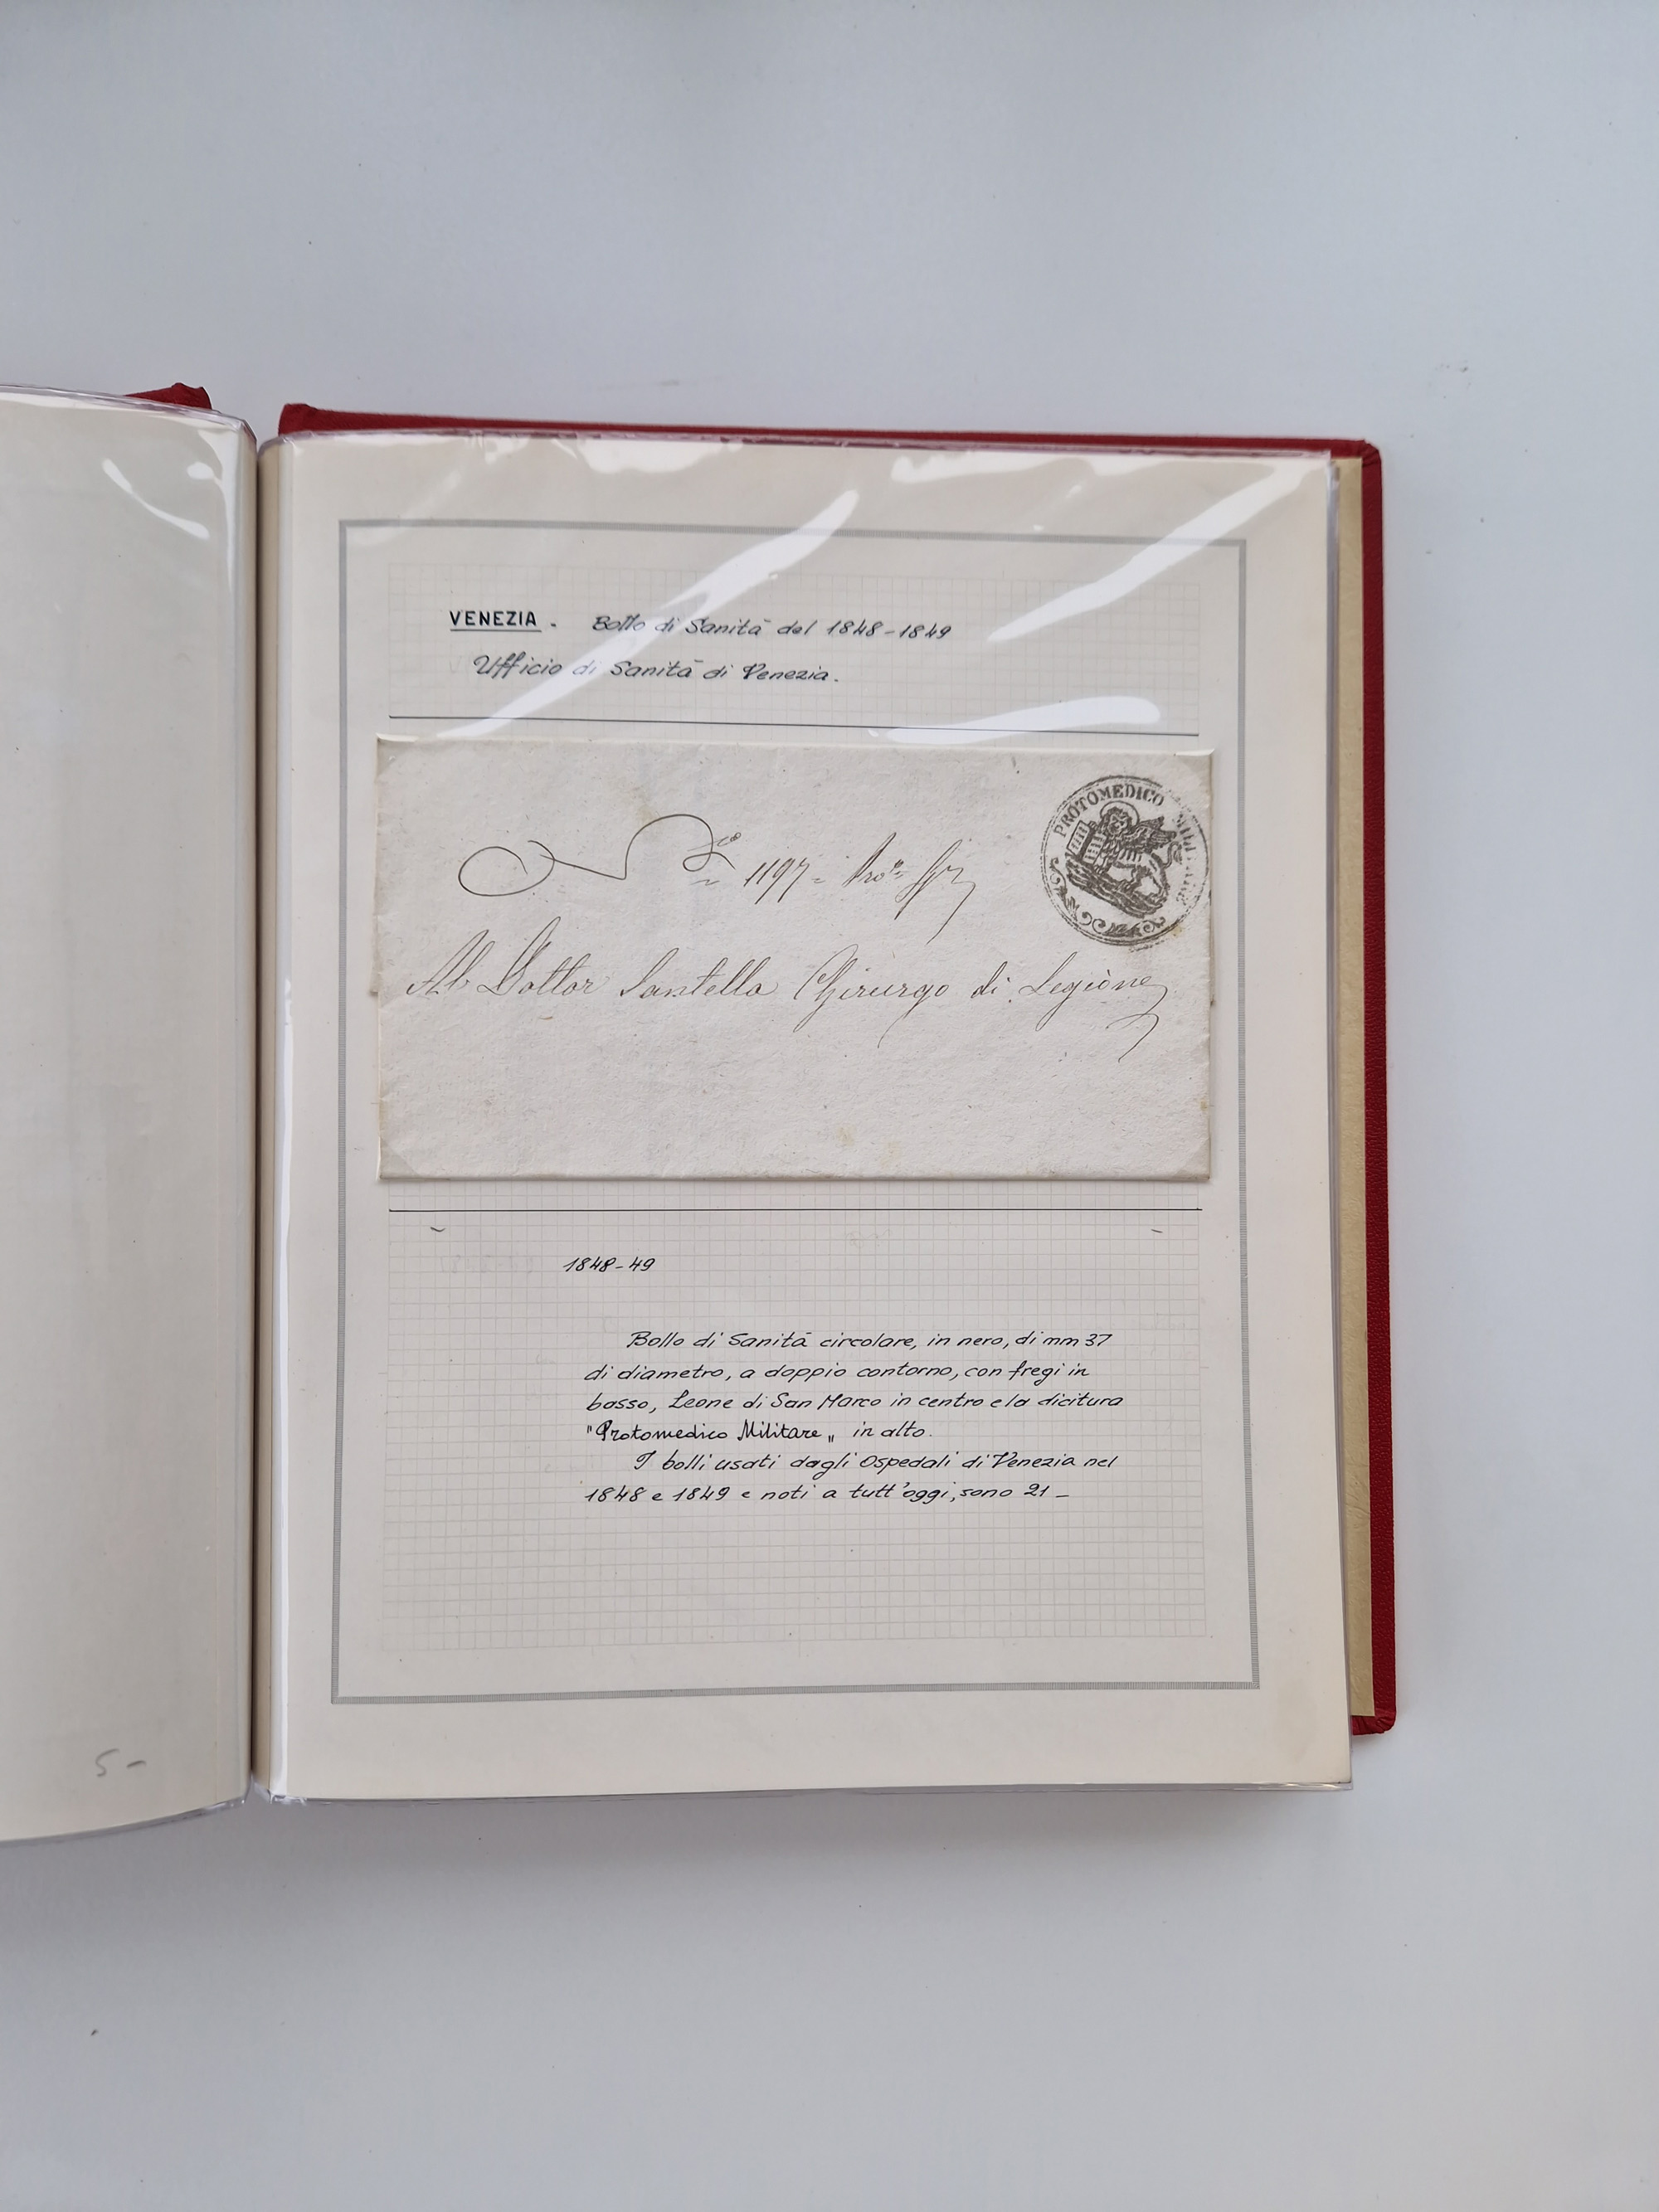 VENEZIA - Bollo di Sanità del 1848-1849
Ufficio di Sanità di Venezia.
PROTOMEDICO MILITARE
1197
Al Dottor Santello Chirurgo di Legione
1848-49
Bollo di Sanità circolare, in nero, di mm 37
di diametro, a doppio contorno, con fregi in
basso, Leone di San Marco in centro e la dicitura
"Protomedico Militare" in alto.
I bolli usati dagli Ospedali di Venezia nel
1848 e 1849 e noti a tutt'oggi, sono 21 -
5 -